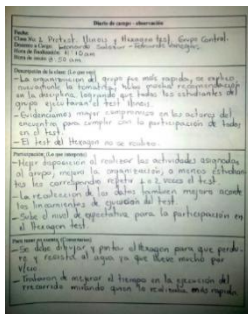 Diario de campo - observación
Fecha:
Clase No. 2 Pretest Illinois y Hexagon test. Grupo Control.
Docente a Cargo: Leonardo Salazar - Edmundo Vanegas.
Hora de Realización: 8:10 am
Hora de 8:50 am
Descripción de la clase: (Lo que veo)
- La organización del grupo fue más rápida, se explicó
nuevamente la temática, sobre recomendación
en la disciplina, logrando que todos los estudiantes del
grupo ejecutaran el test Illinois.
- Evidenciamos mayor compromiso en los actores del
encuentro para cumplir con la participación de todos
en el test.
- El test del Hexagon no se realizó.
Participación: (Lo que categorizo)
- Mejor disposición al realizar las actividades asignadas
al grupo, mejoró la organización, a menos estudiantes
les correspondió repetir 1 o 2 veces el test.
- La recolección de los datos también mejoró acorde
los lineamientos de del test.
- Sube el nivel de expectativa para la participación en
el Hexagon test.
Para tener en cuenta: (Comentarios)
- Se debe dibujar y pintar el Hexagon para que perdure
y resista el agua ya que llueve mucho por
- Trataron de mejorar el tiempo en la ejecución del
recorrido mirando quien lo realizaba más rápido.